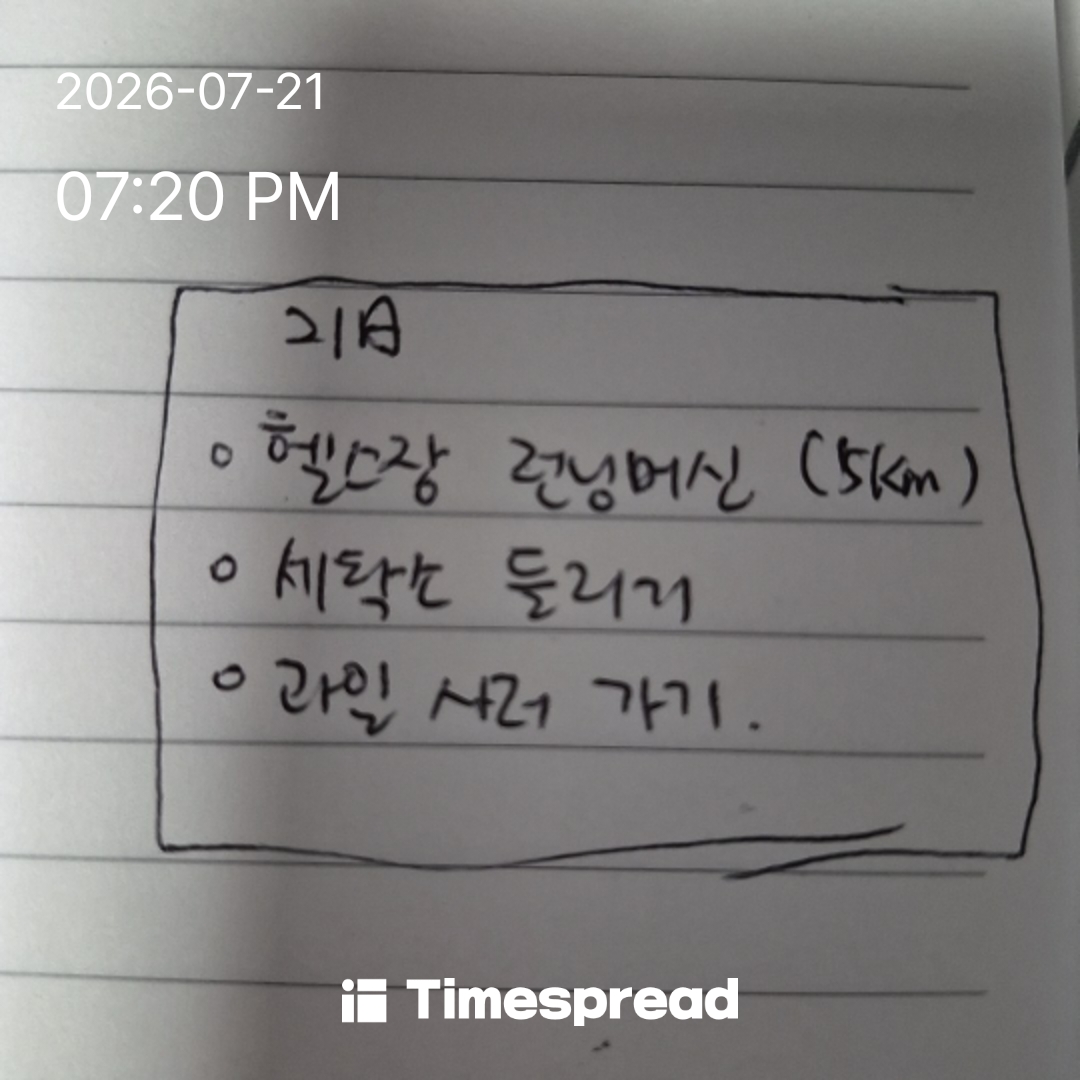 2026-07-21
07:20 PM
21日
o 헬스장 런닝머신 (5km)
o 세탁소 들리기
o 과일 사러 가기.
Timespread